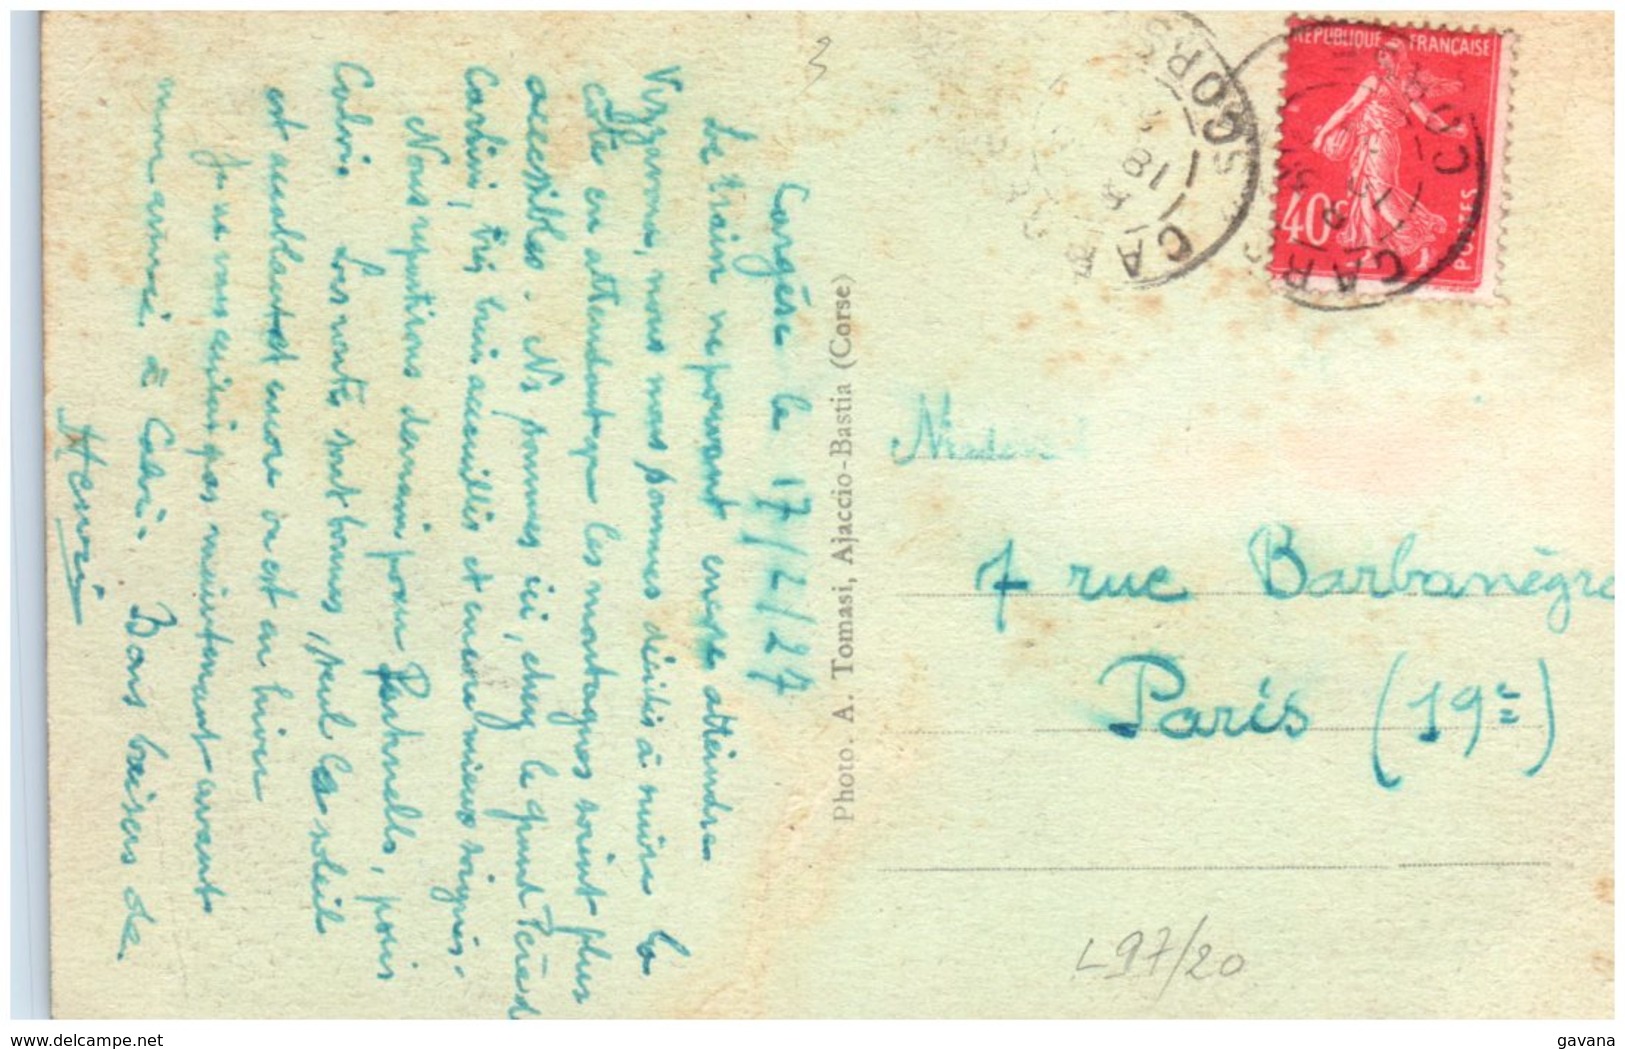 Cargèse le 17/2/27
Le train ne pouvant encore atteindre
Vizzavona, nous nous sommes décidés à suivre la
côte en attendant que les montagnes soient plus
accessibles. Ns sommes ici, chez le grand Père de
Carlini, très bien accueillis et encore mieux soignés.
Nous repartirons demain pour Partinello, puis
Calvi. Les routes sont bonnes, seul le soleil
est accablant et encore on est en hiver
Je ne vous écrirai pas maintenant avant
mon arrivée à Calvi. Bons baisers de
Henri
3
Photo. A. Tomasi, Ajaccio-Bastia (Corse)
RÉPUBLIQUE FRANÇAISE
40c
POSTES
CARG
CORSE
18
Madame
7 rue Barbanègre
Paris (19e)
L97/20
delcampe.net
gavana